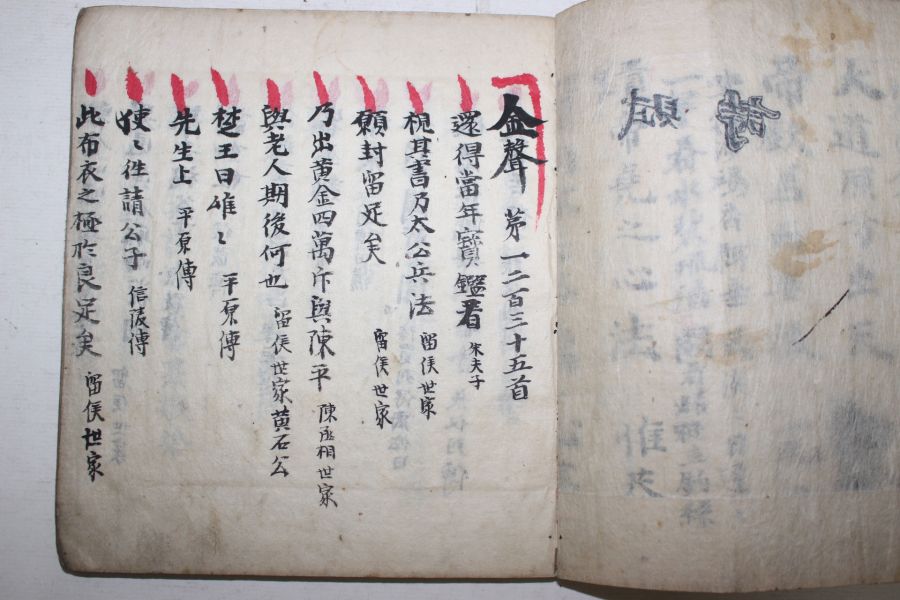 詩
賦
金聲 第一二百三十五首
還得當年寶鑑看 朱夫子
視其書乃太公兵法 留侯世家
願封留足矣 留侯世家
乃出黃金四萬斤與陳平 陳丞相世家
與老人期後何也 留侯世家黃石公
楚王曰唯〻 平原傳
先生上 平原傳
使〻徃請公子 信陵傳
此布衣之極於良足矣 留侯世家